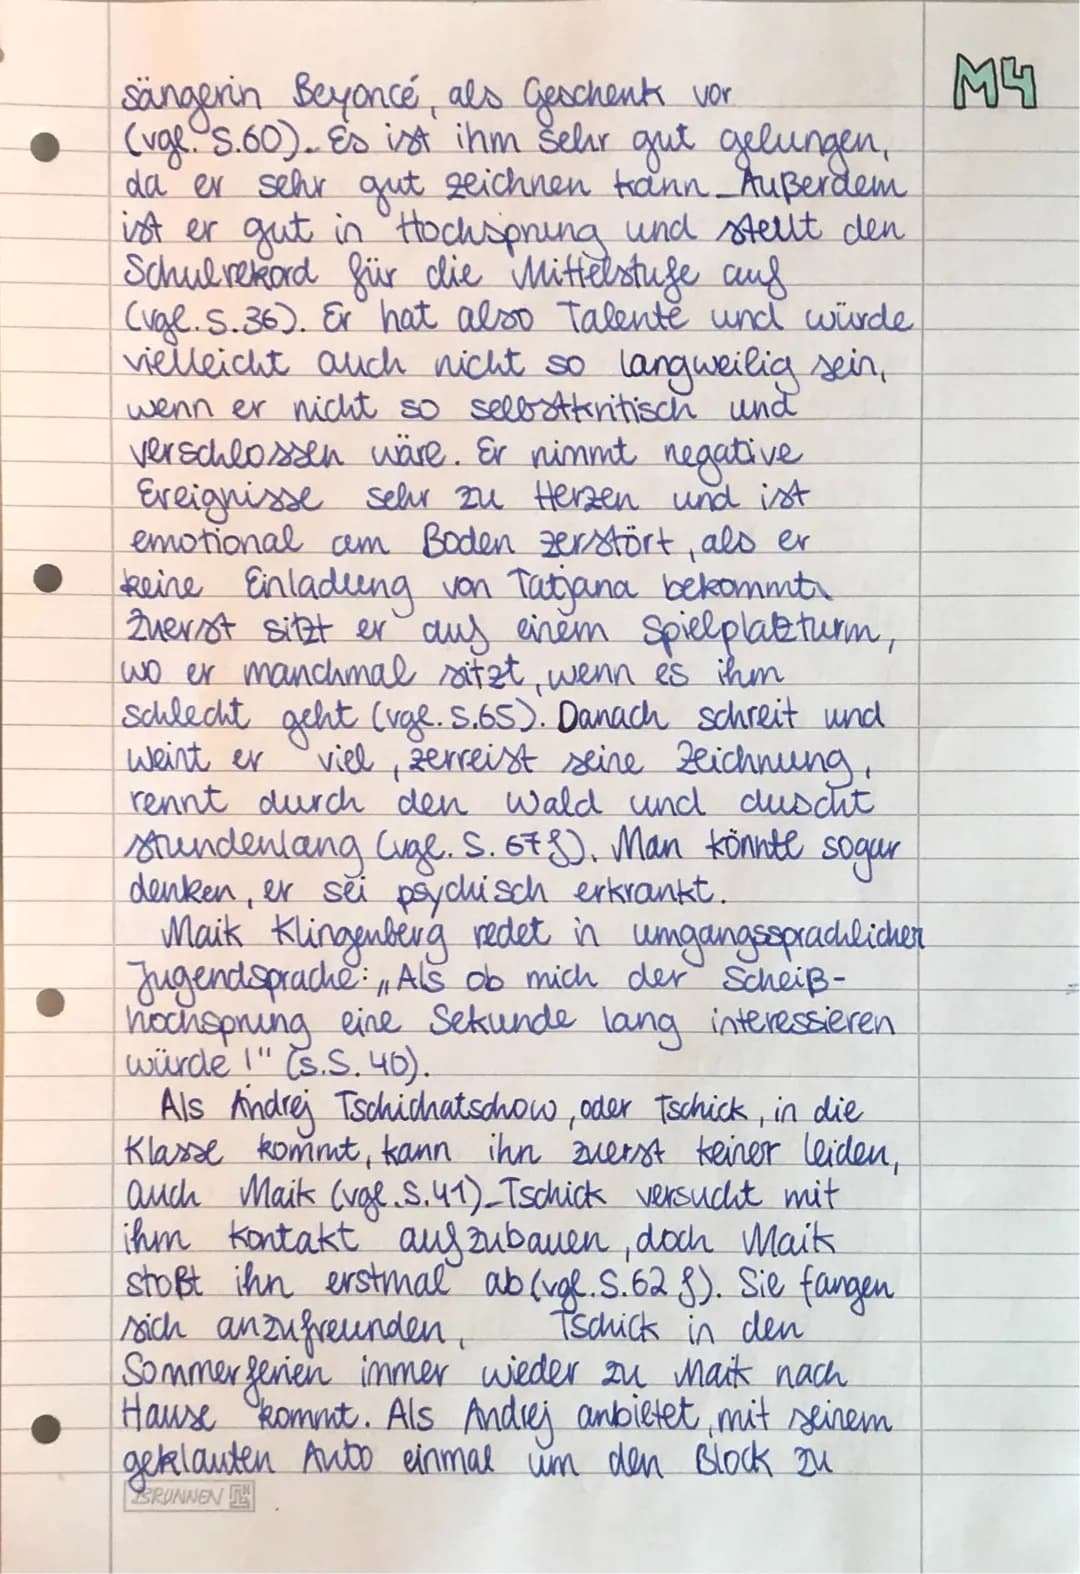 M4
sängerin Beyoncé, als Geschenk vor
(vgl. S.60). Es ist ihm sehr gut gelungen,
da er sehr gut zeichnen kann. Außerdem
ist er gut in Hochsprung und stellt den
Schulrekord für die Mittelstufe auf
(vgl. S.36). Er hat also Talente und würde
vielleicht auch nicht so langweilig sein,
wenn er nicht so selbstkritisch und
verschlossen wäre. Er nimmt negative
Ereignisse sehr zu Herzen und ist
emotional am Boden zerstört, als er
keine Einladung von Tatjana bekommt.
Zuerst sitzt er auf einem Spielplatzturm,
wo er manchmal sitzt, wenn es ihm
schlecht geht (vgl. S.65). Danach schreit und
weint er viel, zerreist seine Zeichnung,
rennt durch den Wald und duscht
stundenlang (vgl. S. 67 f). Man könnte sogar
denken, er sei psychisch erkrankt.
Maik Klingenberg redet in umgangssprachlicher
Jugendsprache: „Als ob mich der Scheiß-
hochsprung eine Sekunde lang interessieren
würde!" (s.S. 40).
Als Andrej Tschichatschow, oder Tschick, in die
Klasse kommt, kann ihn zuerst keiner leiden,
auch Maik (vgl. S.41). Tschick versucht mit
ihm Kontakt aufzubauen, doch Maik
stoßt ihn erstmal ab (vgl. S.62 f). Sie fangen
sich anzufreunden, Tschick in den
Sommerferien immer wieder zu Maik nach
Hause kommt. Als Andrej anbietet, mit seinem
geklauten Auto einmal um den Block zu
BRUNNEN